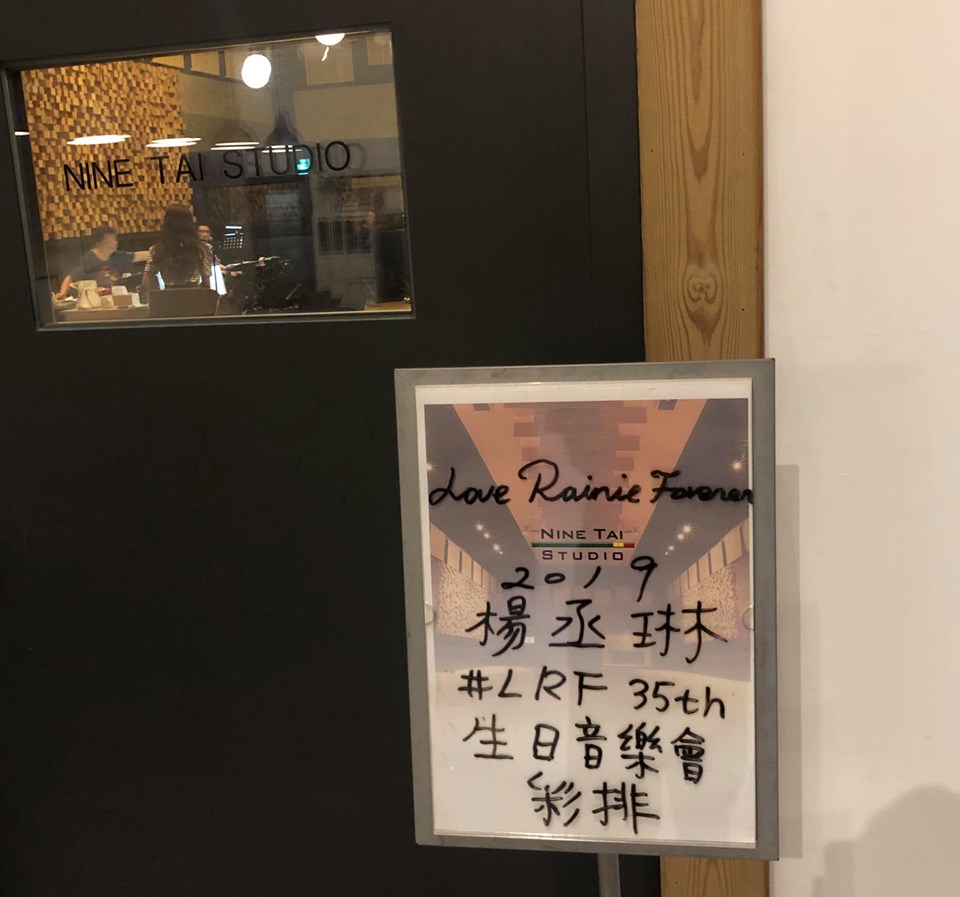 NINE TAI STUDIO
Love Rainie Forever
NINE TAI
STUDIO
2019
楊丞琳
#LRF 35th
生日音樂會
彩排